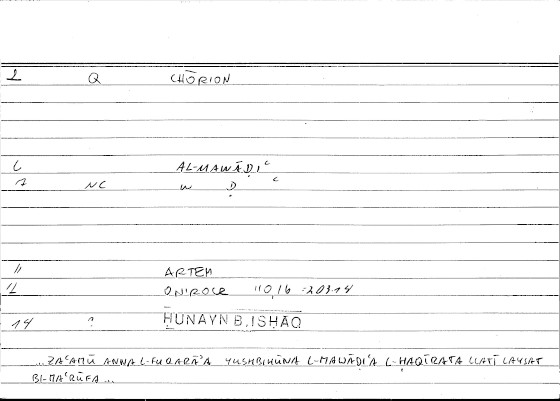 2 Q CHŌRION
6 AL-MAWĀḌIʿ
7 NC W Ḍ ʿ
11 ARTEM
12 ONIROCR 110,16 = 203.14
14 ? ḤUNAYN B. ISḤĀQ
...ZAʿAMŪ ANNA L-FUQARĀʾA YUSHBIHŪNA L-MAWĀḌIʿA L-ḤAQĪRATA LLATĪ LAYSAT
BI-MAʿRŪFA...